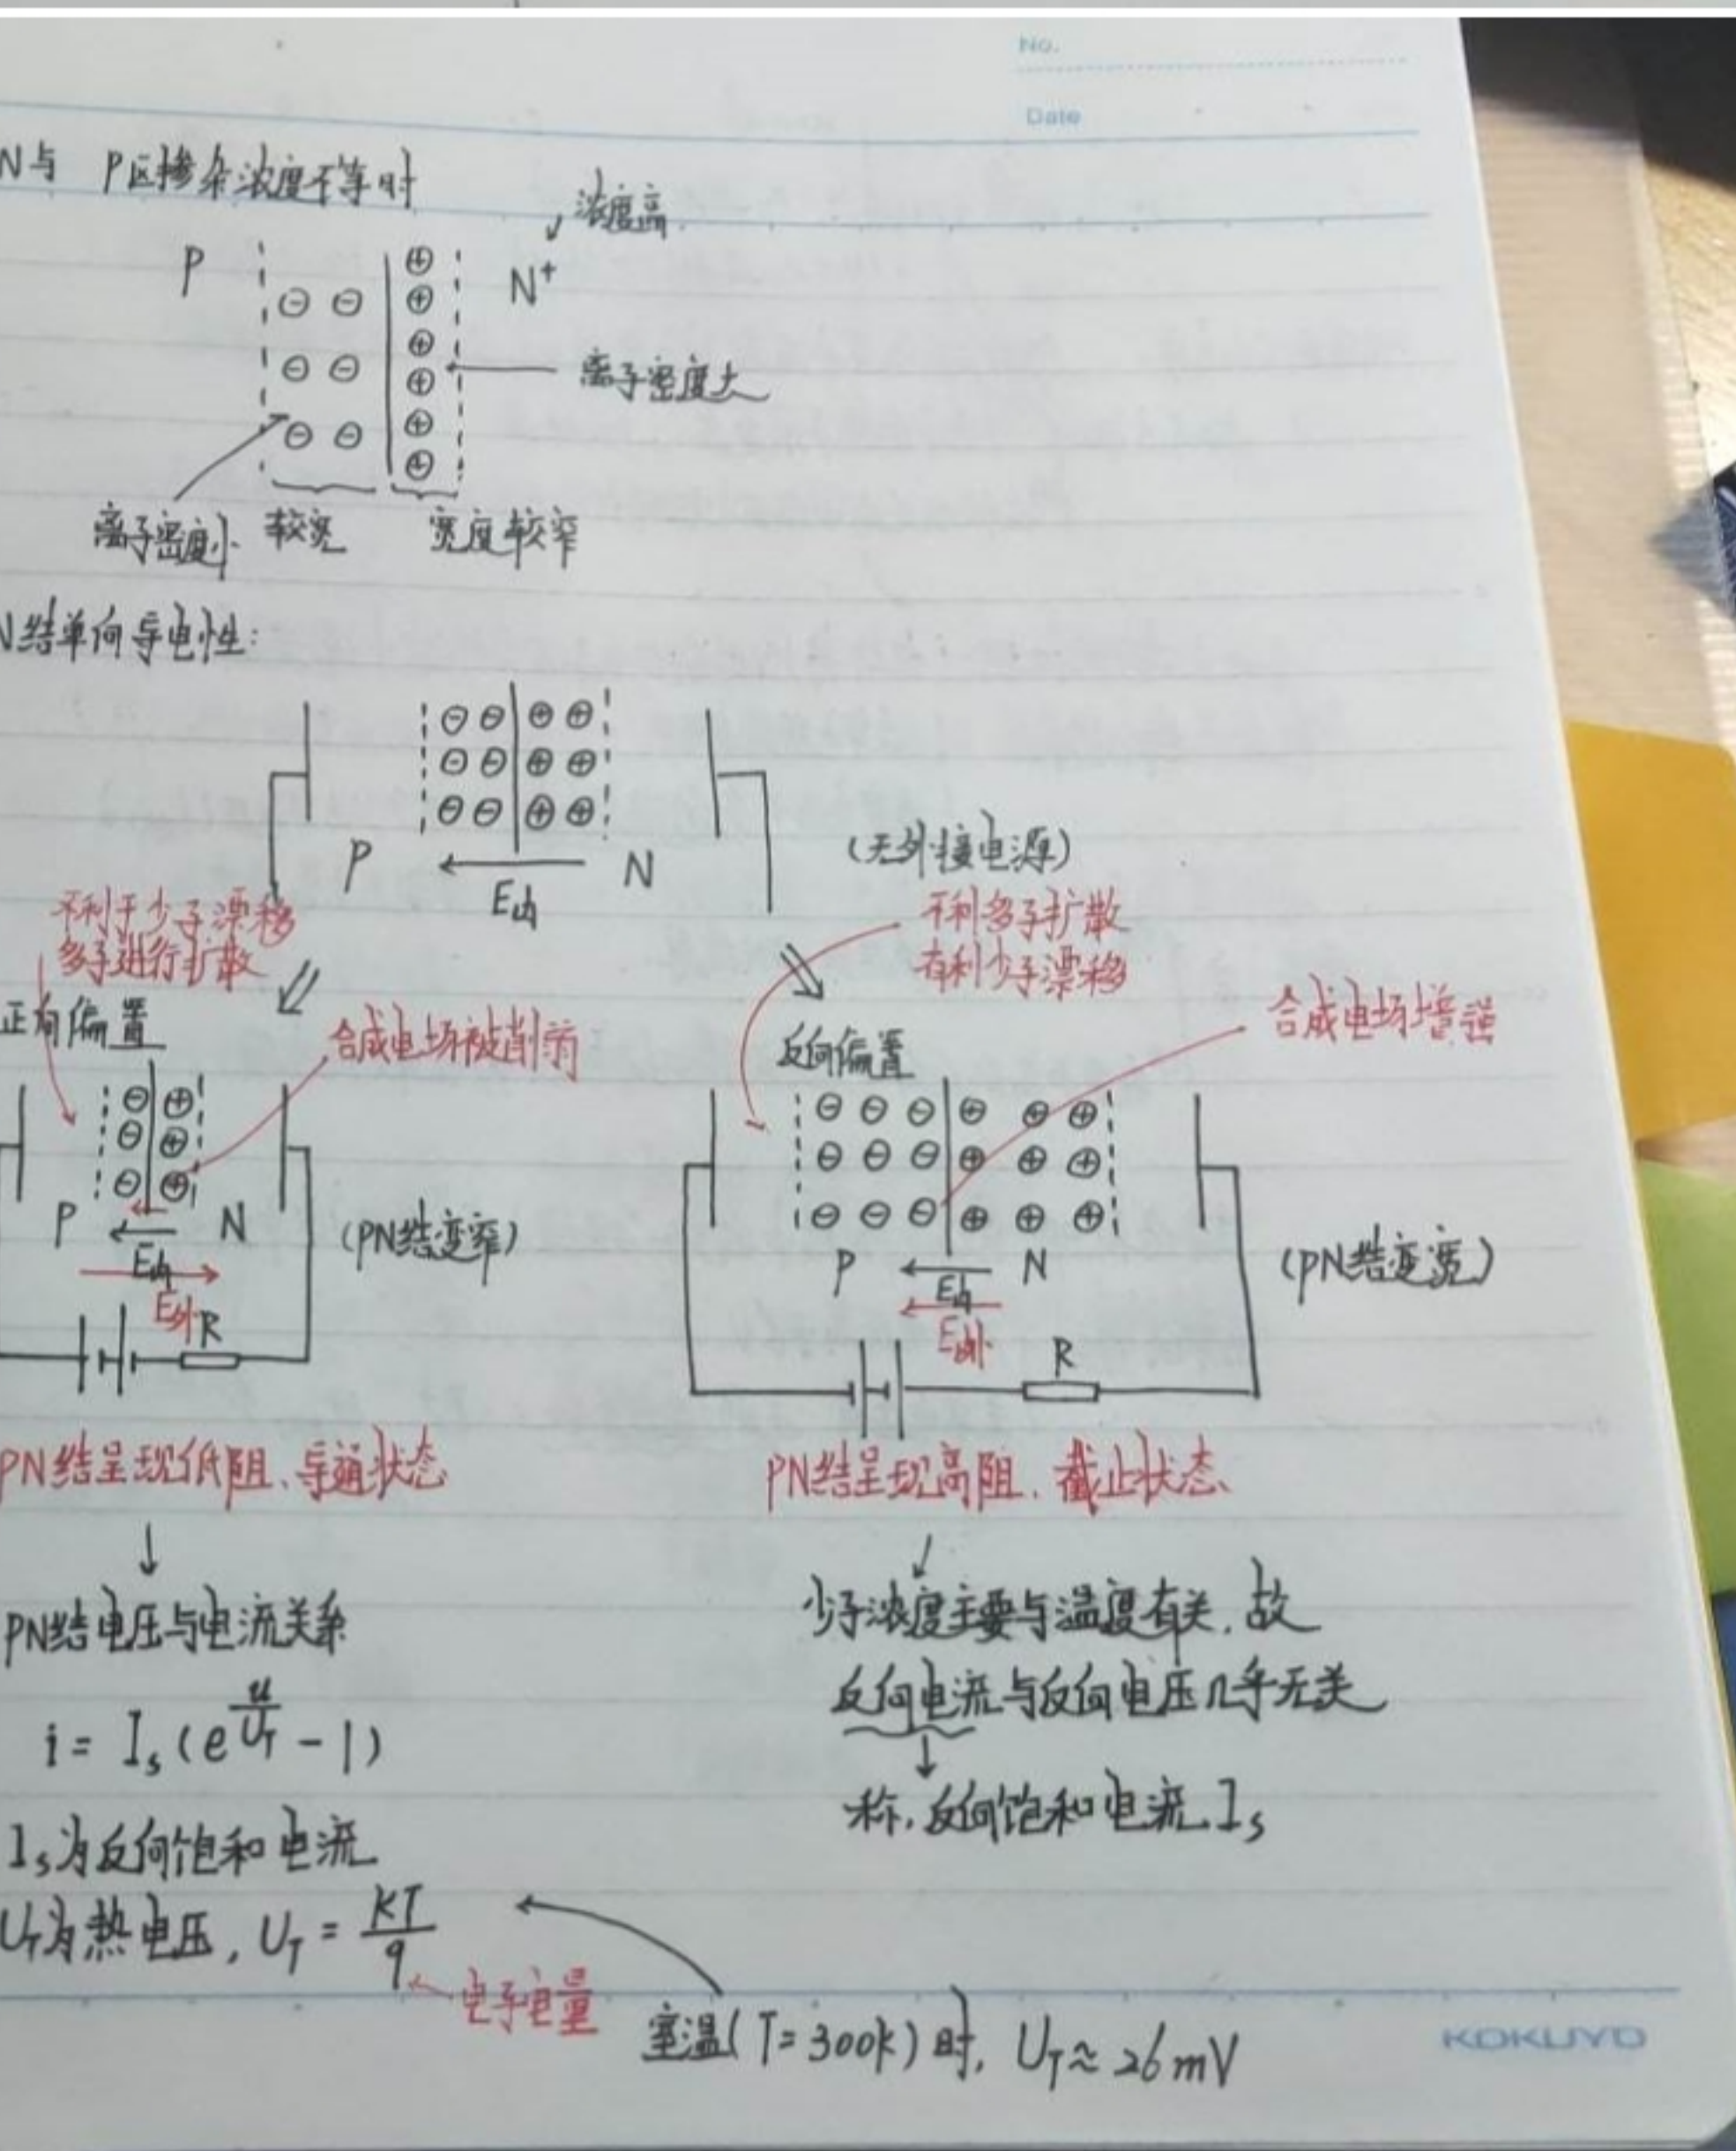 No.
Date
N与 P区掺杂浓度不等时
浓度高
P
N⁺
离子密度大
离子密度小 较宽 宽度较窄
N结单向导电性:
P
E内
N
(无外接电源)
不利于少子漂移
多子进行扩散
不利多子扩散
有利少子漂移
正向偏置
合成电场被削弱
反向偏置
合成电场增强
P
E内
N
(PN结变窄)
E外
R
P
E内
N
(PN结变宽)
E外
R
PN结呈现低阻、导通状态
PN结呈现高阻、截止状态
PN结电压与电流关系
i = Is(e^(u/UT) - 1)
Is为反向饱和电流
UT为热电压, UT = kT/q
电子电量
少子浓度主要与温度有关,故
反向电流与反向电压几乎无关
称,反向饱和电流Is
室温(T=300k)时, UT≈26mV
KOKUYO